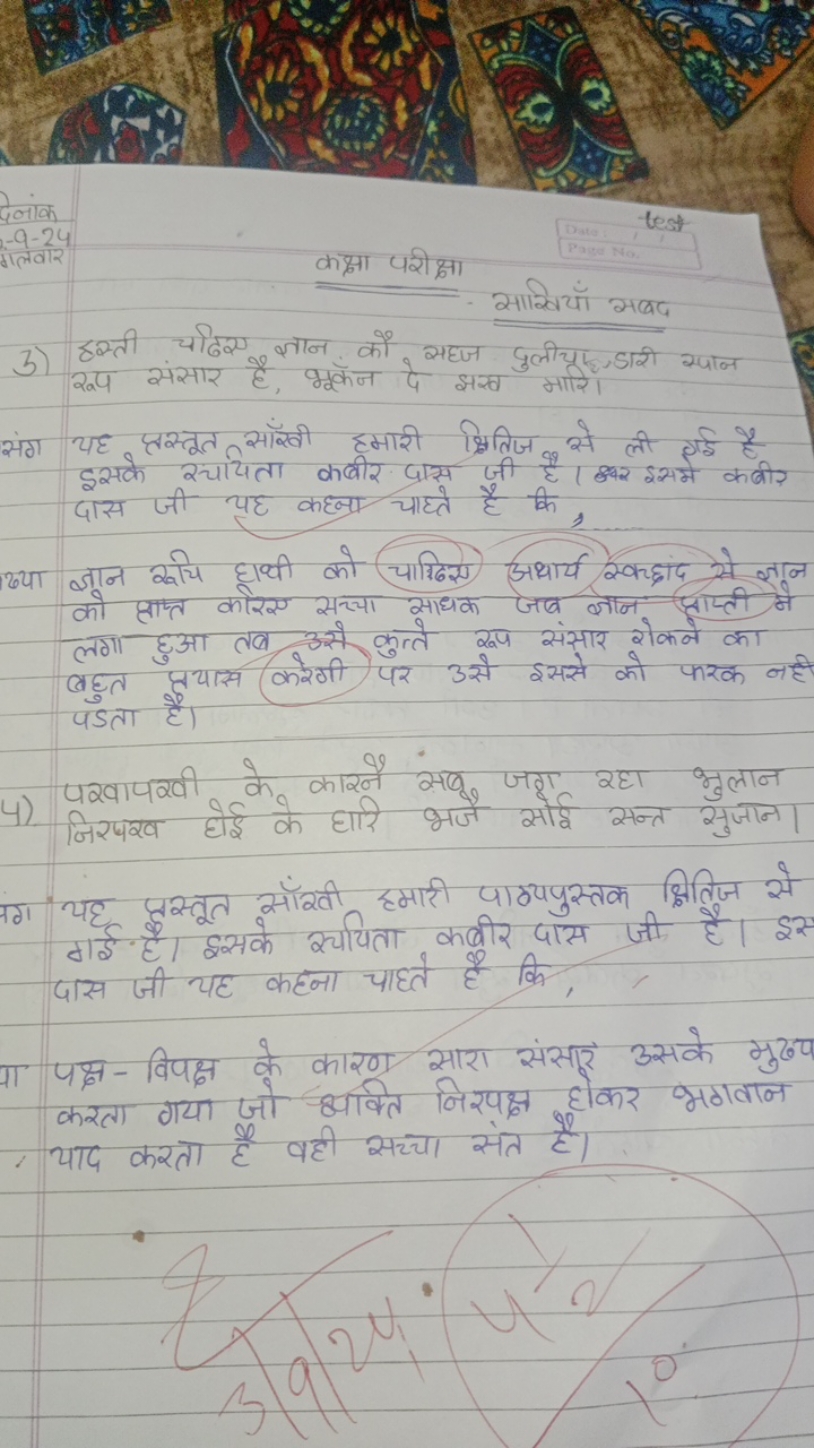 test
Date: / /
Page No.
-9-24
कक्षा परीक्षा
साखियाँ सबद
3) हस्ती चढिए ज्ञान कौ सहज दुलीचा डारी स्वान
रूप संसार है, भूकँन दे झख मारि।
यह प्रस्तूत साँखी हमारी क्षितिज से ली गई है
इसके रचयिता कबीर दास जी है। इसमे कबीर
दास जी यह कहना चाहते है कि,
ज्ञान रूपि हाथी को चाढिए अथार्य स्वछंद से ज्ञान
को प्राप्त करिए सच्चा साधक जब ज्ञान प्राप्ती मे
लगा हुआ तब उसे कुत्ते रूप संसार रोकने का
बहुत प्रयास करेगी पर उसे इससे को फरक नही
पडता है।
4) परवापरवी के कारनै सबू जग रहा भुलान
निरपख होई के हारि भजै सोई सन्त सुजान।
यह प्रस्तूत साँखी हमारी पाठ्यपुस्तक क्षितिज से
गई है। इसके रचयिता कबीर दास जी है। इस
दास जी यह कहना चाहते है कि,
पक्ष - विपक्ष के कारण सारा संसार उसके
करता गया जो व्यक्ति निरपक्ष होकर भगवान
याद करता है वही सच्चा संत है।